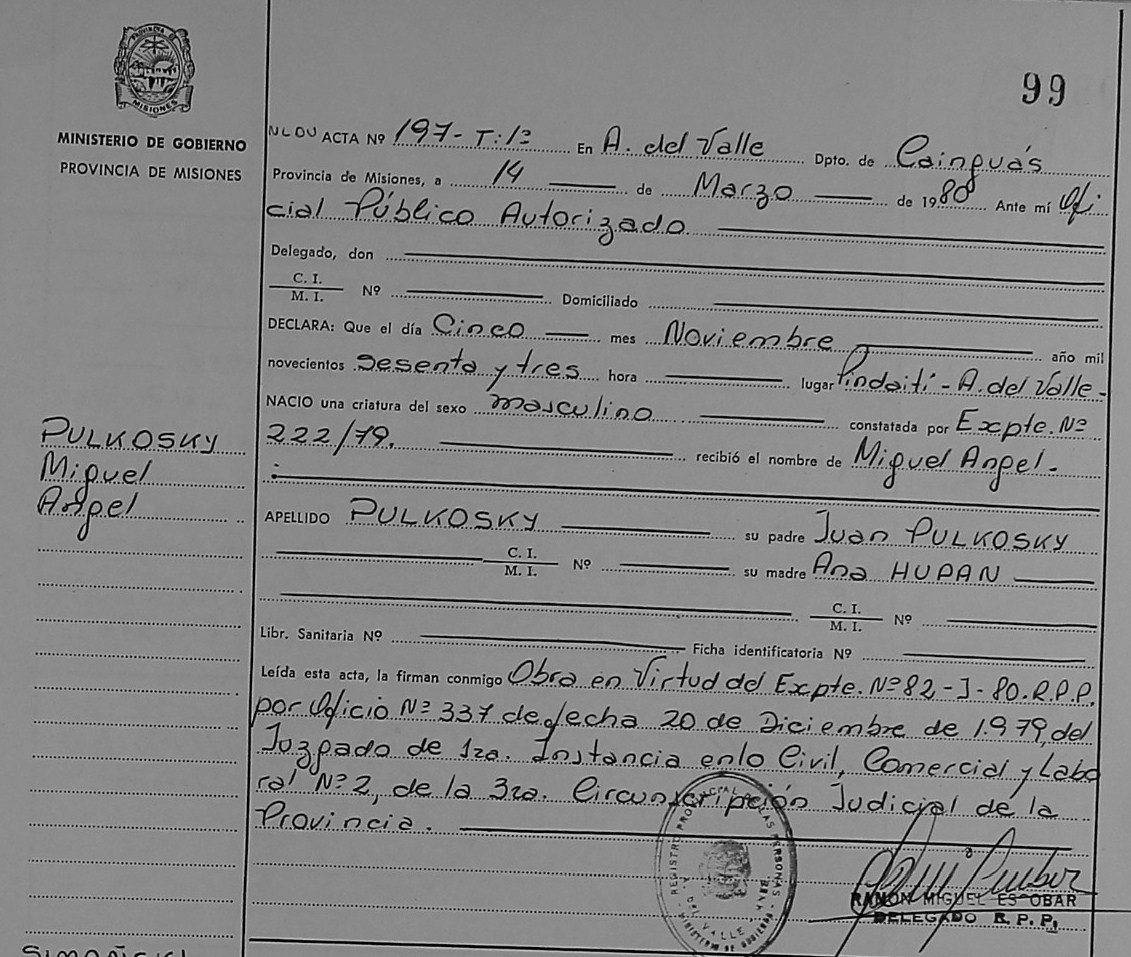 PROVINCIA DE
MISIONES
MINISTERIO DE GOBIERNO
PROVINCIA DE MISIONES
PULKOSKY
Miguel
Angel
99
ACTA Nº 197 - T: 1º En A. del Valle Dpto. de Cainguás
Provincia de Misiones, a 14 de Marzo de 1980 Ante mí Ofi
cial Público Autorizado
Delegado, don
C. I.
M. I. Nº Domiciliado
DECLARA: Que el día Cinco mes Noviembre año mil
novecientos sesenta y tres hora lugar Pindaití - A. del Valle -
NACIO una criatura del sexo masculino constatada por Expte. Nº
222/79. recibió el nombre de Miguel Angel -
APELLIDO PULKOSKY su padre Juan PULKOSKY
C. I.
M. I. Nº su madre Ana HUPAN
C. I.
M. I. Nº
Libr. Sanitaria Nº Ficha identificatoria Nº
Leída esta acta, la firman conmigo Obra en Virtud del Expte. Nº 82 - J - 80. R.P.P.
por Oficio Nº 337 de fecha 20 de Diciembre de 1.979, del
Juzgado de 1ra. Instancia en lo Civil, Comercial y Labo
ral Nº 2, de la 3ra. Circunscripción Judicial de la
Provincia.
REGISTRO PROVINCIAL DE LAS PERSONAS
DEL VALLE
RAMON MIGUEL ESCOBAR
DELEGADO R. P. P.